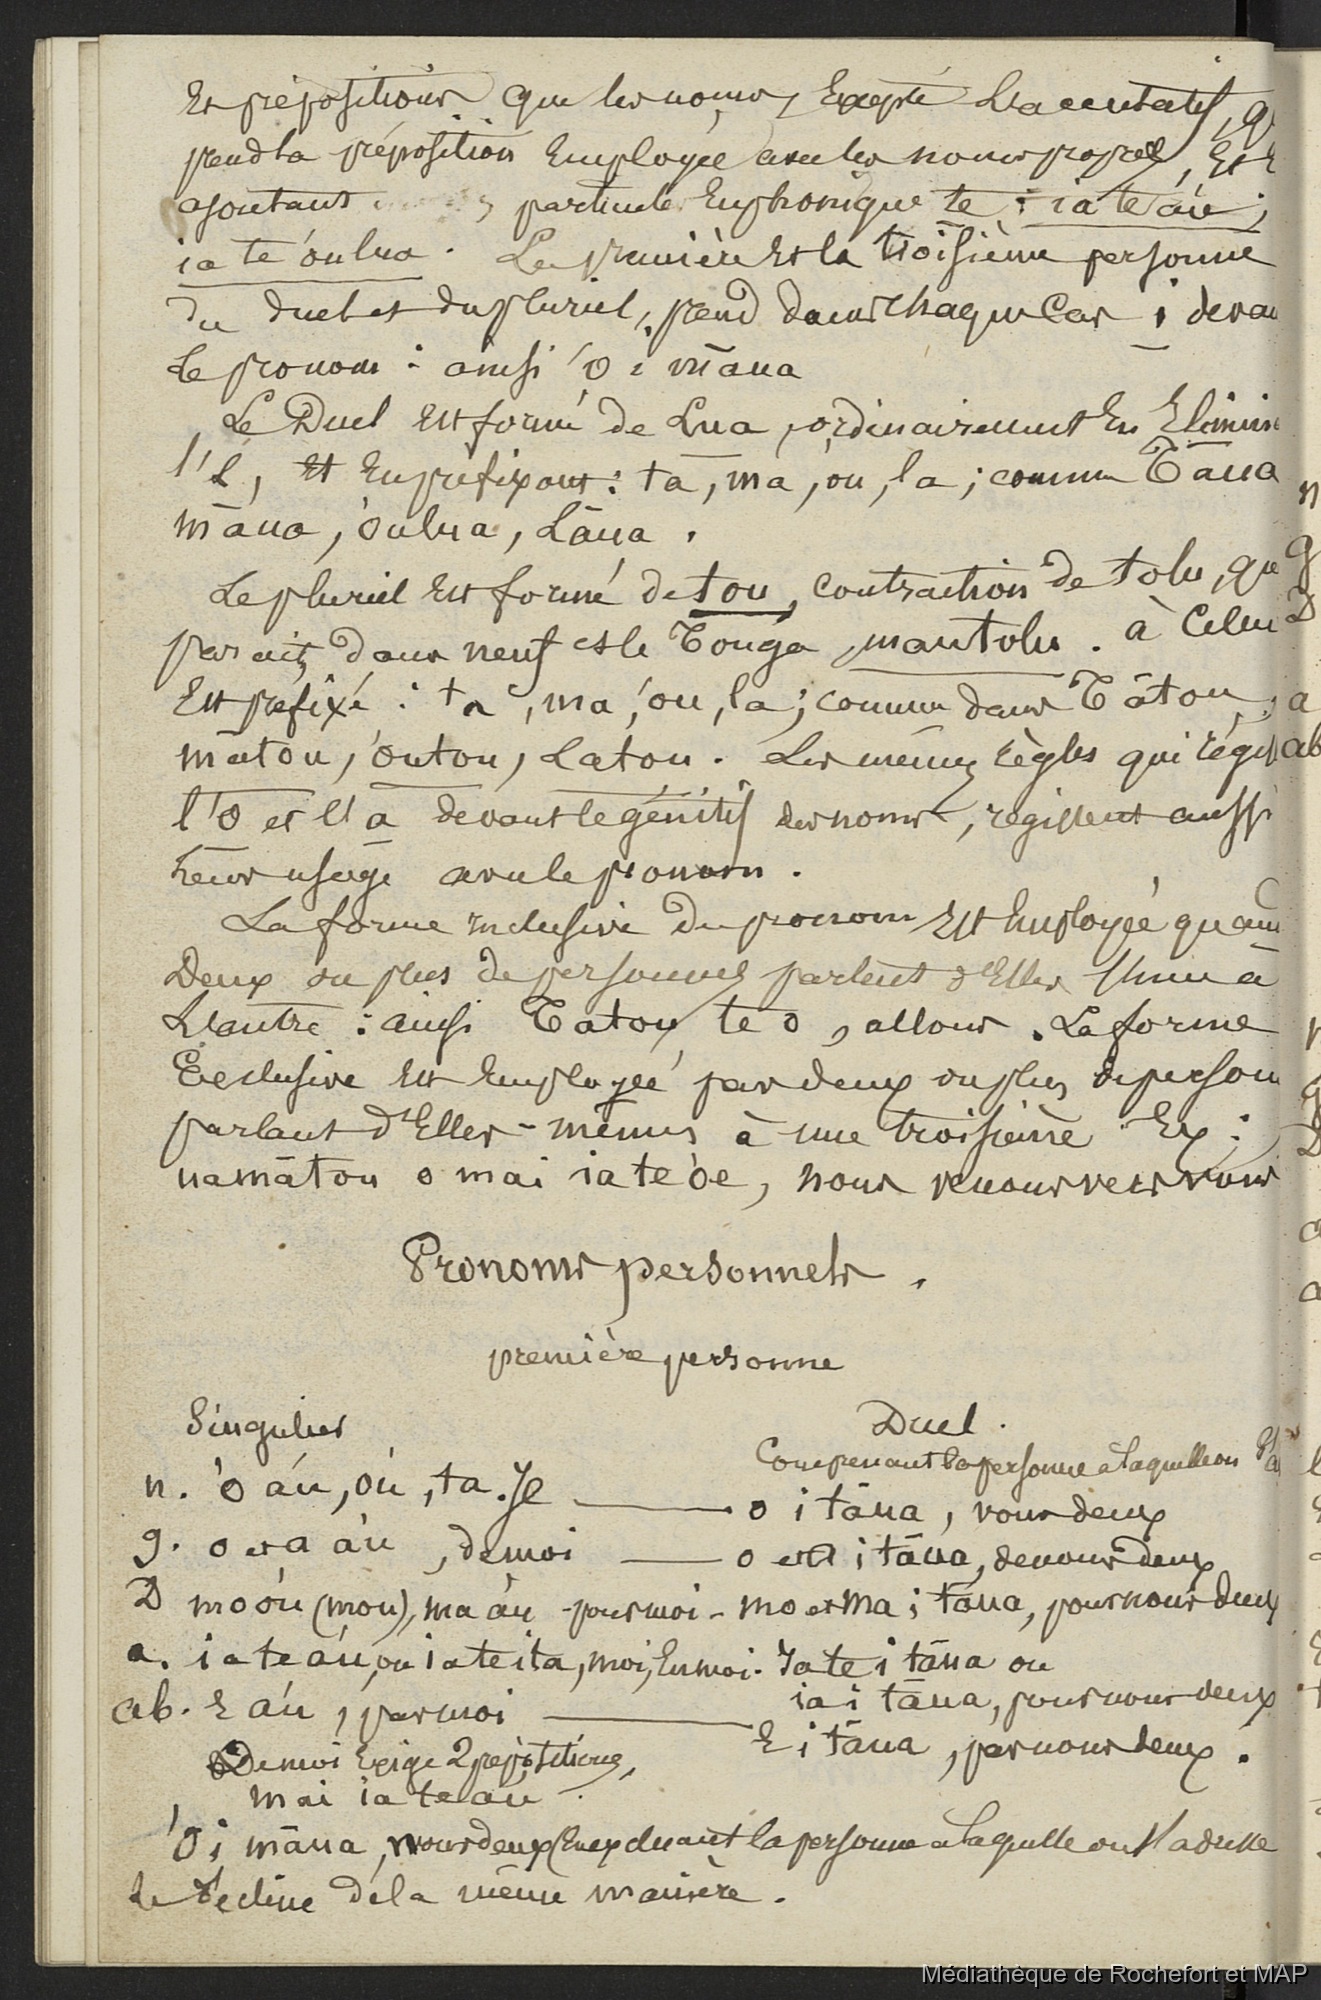 et prépositions que les noms, Excepté L'accusatif, q
prend la préposition Employée avec les noms propres, Et E
ajoutant particule Euphonique te : ia te áu ;
ia te óulua . La première et la troisième personne
du duel et du pluriel, prend dans chaque Cas i devan
le pronom : ainsi 'o i māua
Le Duel est formé de Lua, ordinairement En Elimin
l'L, Et En prefixant : ta, ma, ou, la ; comme Tāua
māua, óulua, Lāua .
Le pluriel Est formé de tou, contraction de tolu, que
parait, dans neuf et le Tonga, mautolu . à Celui
Est préfixé : ta, ma, 'ou, la ; comme dans Tātou,
mātou, 'outou, Latou . Les mêmes règles qui régis
l'o et l'a devant le génitif des noms, régissent aussi
leur usage avec le pronom .
La forme inclusive du pronom Est Employée quan
Deux ou plus de personnes parlent d'Elles l'une à
L'autre : ainsi Tatou te o, allons . La forme
Exclusive Est Employée par deux ou plus de person
parlant d'Elles-mêmes à une troisième Ex :
na mātou o mai ia te óe, nous venons vers vous
Pronoms personnels .
première personne
Singulier
Duel .
Comprenant la personne à laquelle on
n. 'o áu, óu, ta . Je — o i tāua, nous deux
g. o et a áu, de moi — o et a i tāua, de nous deux
D mo óu (mou), ma áu pour moi - mo et ma i tāua, pour nous deux
a. ia te áu, ou ia te ita, moi, En moi . Ia te i tāua ou
ia i tāua, pour nous deux
ab. E áu, par moi — E i tāua, par nous deux .
De moi Exige 2 prépositions,
mai ia te áu .
'O i māua, nous deux (En excluant la personne à laquelle on s'adresse
se décline de la même manière .
Médiathèque de Rochefort et MAP